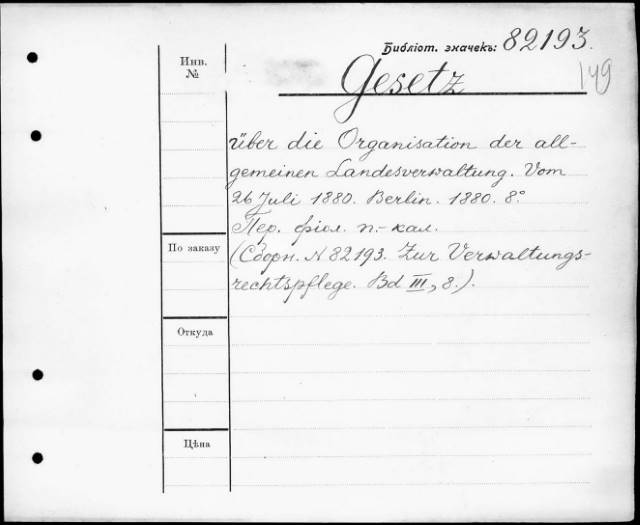 Библіот. значекъ: 82193.
149
Инв. №
Gesetz
über die Organisation der all-
gemeinen Landesverwaltung. Vom
26 Juli 1880. Berlin. 1880. 8°
Пер. фіол. п.-кал.
По заказу
(Сборн. N 82193. Zur Verwaltungs-
rechtspflege. Bd III, 8.).
Откуда
Цѣна